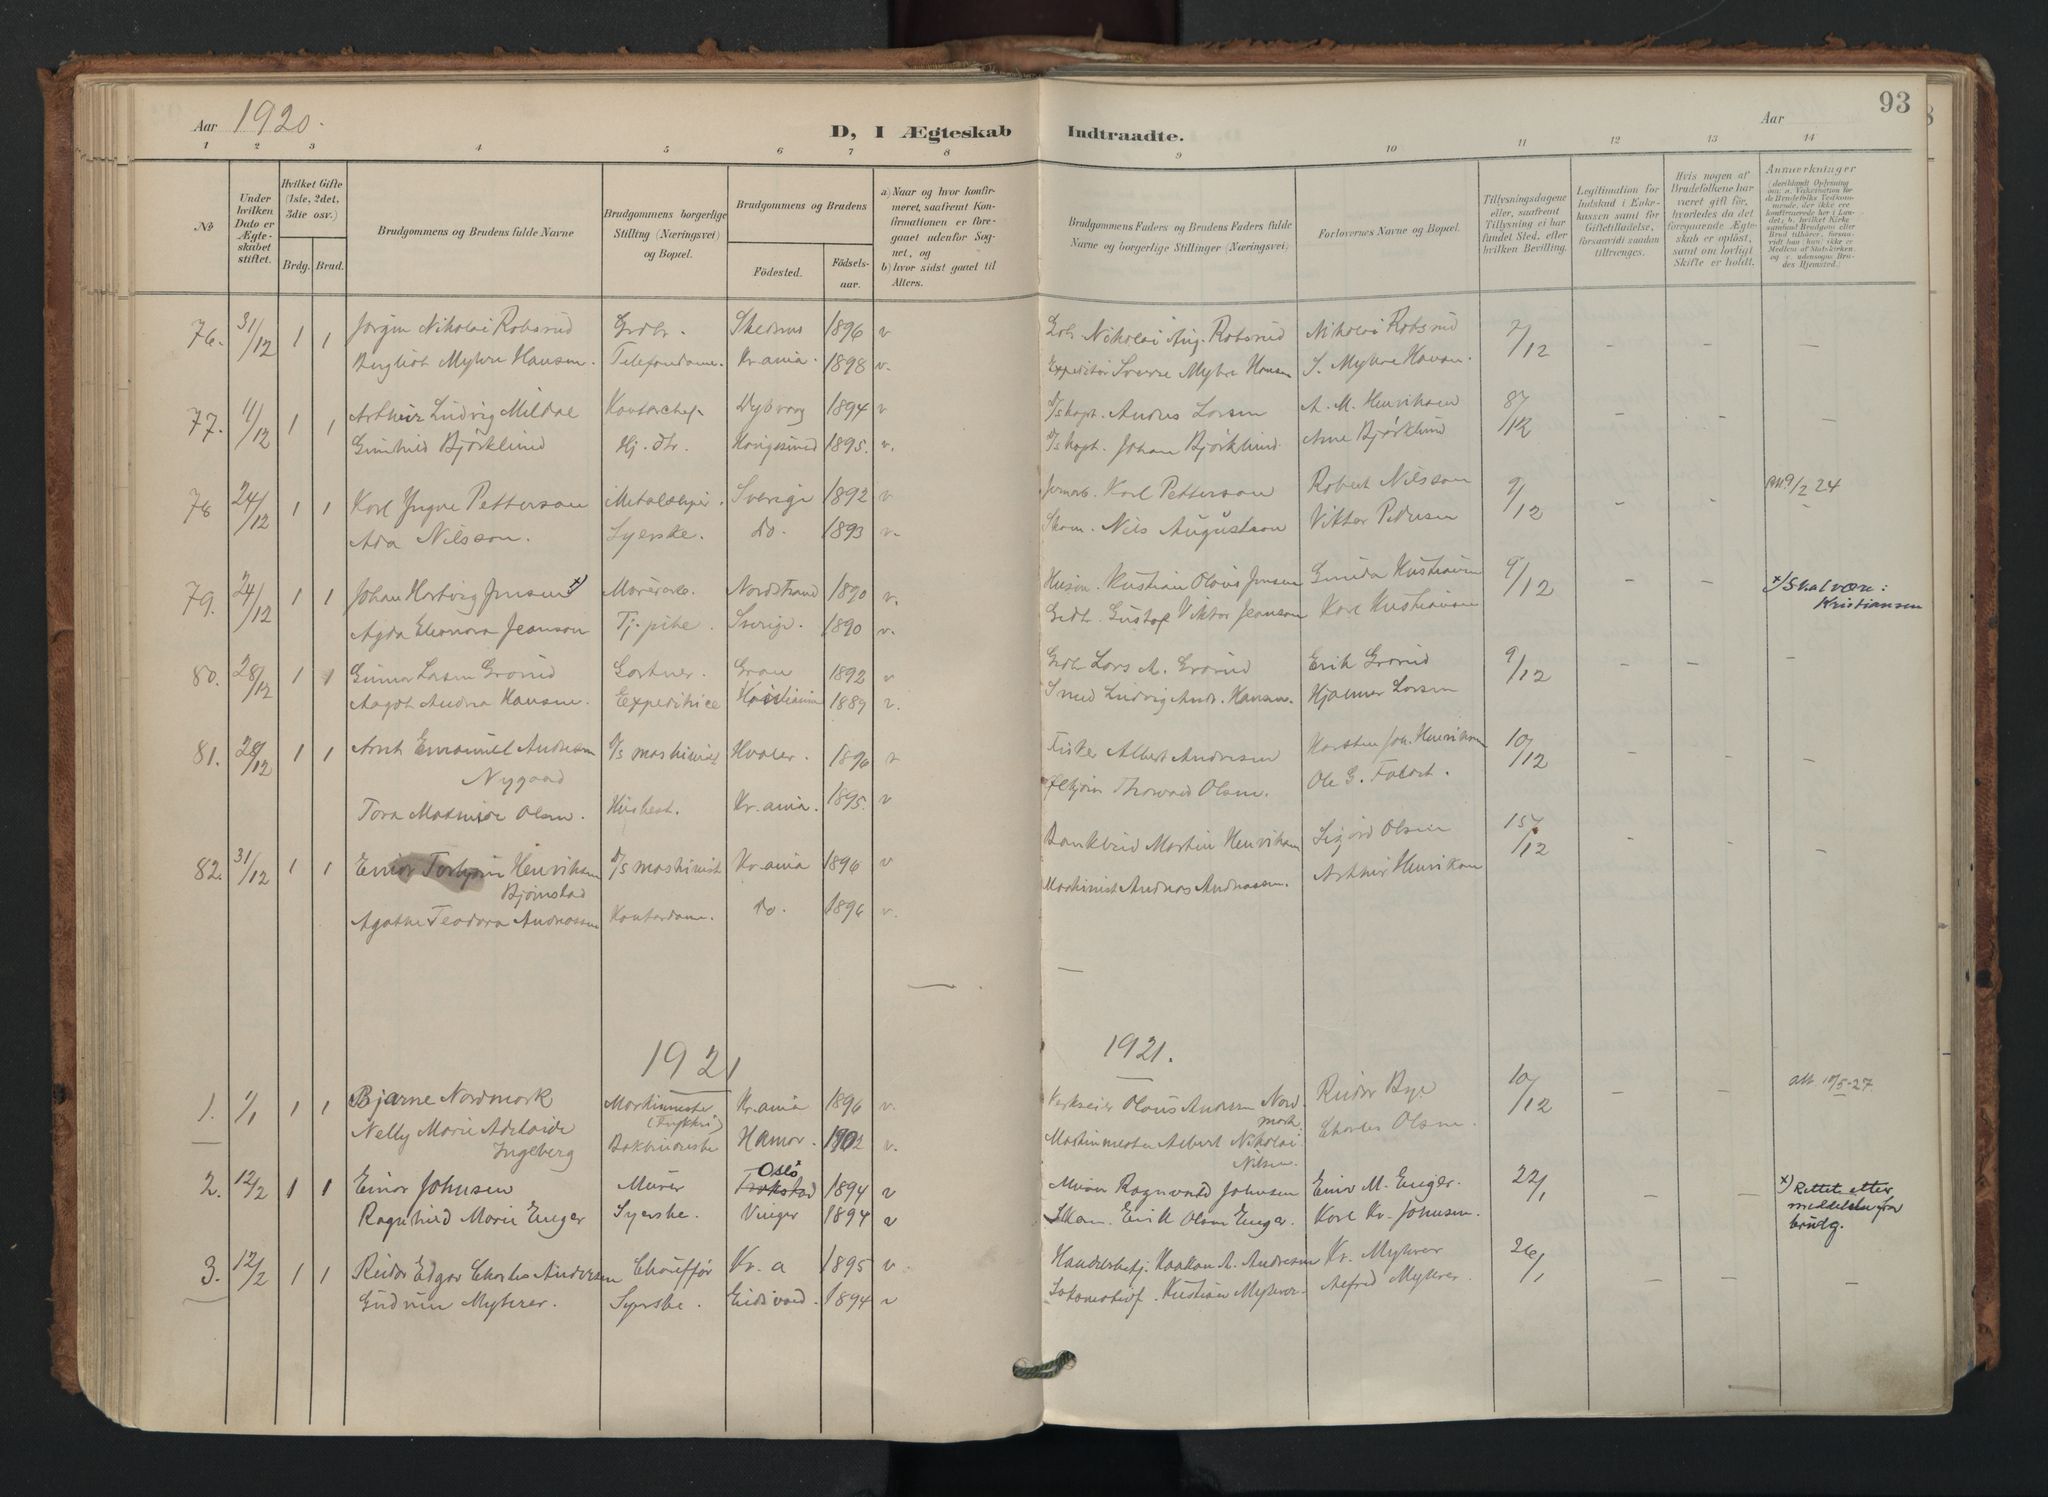 93
Aar 1920.
D, I Ægteskab Indtraadte.
Aar
1 2 3 4 5 6 7 8 9 10 11 12 13 14
No
Under hvilken Dato er Ægteskabet stiftet.
Hvilket Gifte (1ste, 2det, 3die osv.)
Brdg. Brud.
Brudgommens og Brudens fulde Navne
Brudgommens borgerlige Stilling (Næringsvei) og Bopæl.
Brudgommens og Brudens
Födested. Födsels-aar.
a) Naar og hvor konfirmeret, saafremt Konfirmationen er foregaaet udenfor Sognet, og
b) hvor sidst gaaet til Alters.
Brudgommens Faders og Brudens Faders fulde Navne og borgerlige Stillinger (Næringsvei)
Forlovernes Navne og Bopæl.
Tillysningsdagene eller, saafremt Tillysning ei har fundet Sted, efter hvilken Bevilling.
Legitimation for Indskud i Enkekassen samt for Giftetilladelse, forsaavidt saadan tiltrænges.
Hvis nogen af Brudefolkene har været gift før, hvorledes da det foregaaende Ægteskab er opløst, samt om lovligt Skifte er holdt.
Anmærkninger
76. 31/12 1 1 Jørgen Nikolai Robsrud Grdbr. Skedsmo 1896 v Nikolai Aug. Robsrud Nikolai Robsrud 7/12 - - -
Bergliot Myhre Hansen. Telefondame. Kr.ania. 1898 v. Expeditør Sverre Myhre Hansen S. Myhre Hansen.
77. 11/12 1 1 Arthur Ludvig Mildal Kontorchef Dybvaag 1894 v D/S kapt. Andres Larsen A. M. Henriksen 8/12 - - -
Gunhild Bjørklund Hj. dtr. 1895. v. D/S kapt. Johan Bjørklund. Arne Bjørklund
78 24/12 1 1 Karl Yngve Petterson Metalsliper. Sverige 1892 v Jernarb. Karl Petterson Robert Nilsson 9/12 - - 9/2 24
Ada Nilsson. Syerske. Do. 1893 v. Skom. Nils Augustson Viktor Pedersen
79. 24/12 1 1 Johan Hartvig Jensen x) Murerarb. Nordstrand 1890 v. Kristian Olaus Jensen Kristiansen 9/12 - - x) Skal være: Kristiansen
Agda Eleonora Jeanson Tj. pike. Sverige. 1890 v. Grdbr. Gustaf Viktor Jeanson Karl Kristiansen
80. 28/12 1 1 Gunnar Larsen Grorud Gartner. Gran 1892 v Grdb. Lars A. Grorud Erik Grorud 9/12 - - -
Aagot Andrea Hansen. Expeditrice Kristiania 1889 v. Smed Ludvig Andr. Hansen. Hjalmar Larsen
81. 28/12 1 1 Arnt Emanuel Andresen D/S maskinist Hvaler. 1896 v Fisker Albert Andresen Karsten Joh. Henriksen 10/12 - - -
Nygaard
Tora Mathilde Olsen. Husbest. Kr.ania. 1895. v Thorvald Olsen. Ole G.
82. 31/12 1 1 Einar Torbjørn Henriksen D/S maskinist Kr.ania 1896 v Bankbud Martin Henriksen Sigurd Olsen 15/12 - - -
Bjørnstad
Agathe Teodora Andreassen Kontordame. Do. 1896 v. Maskinist Andreas Andreassen. Arthur Henriksen
1921 1921.
1. 1/1 1 1 Bjarne Nordmark Maskinmester Kr.ania 1896 v. Verkseier Olaus Andersen Nordmark. Reidar Bye 10/12 - - att. 10/5-27.
Nelly Marie Adelaide Ingeberg Bokbinderske Hamar. 1902 v. Maskinmester Albert Nikolai Nilsen. Charles Olsen
2. 12/2 1 1 Einar Johnsen Murer Oslo x Trøkstad 1894 v Murer Ragnvald Johnsen Einar M. Enger. 22/1 - - x) Rettet etter meddelelse fra brudg.
Ragnhild Marie Enger Syerske. Vinger 1894 v Skom. Erik Olsen Enger. Karl Kr. Johnsen.
3. 12/2 1 1 Reidar Edgar Charles Andersen Chauffør Kr.a 1895 v Haakon A. Andresen Kr. Myhrer 26/1 - - -
Gudrun Myhrer. Syerske. Eidsvold. 1894 v Kristian Myhrer. Alfred Myhrer.